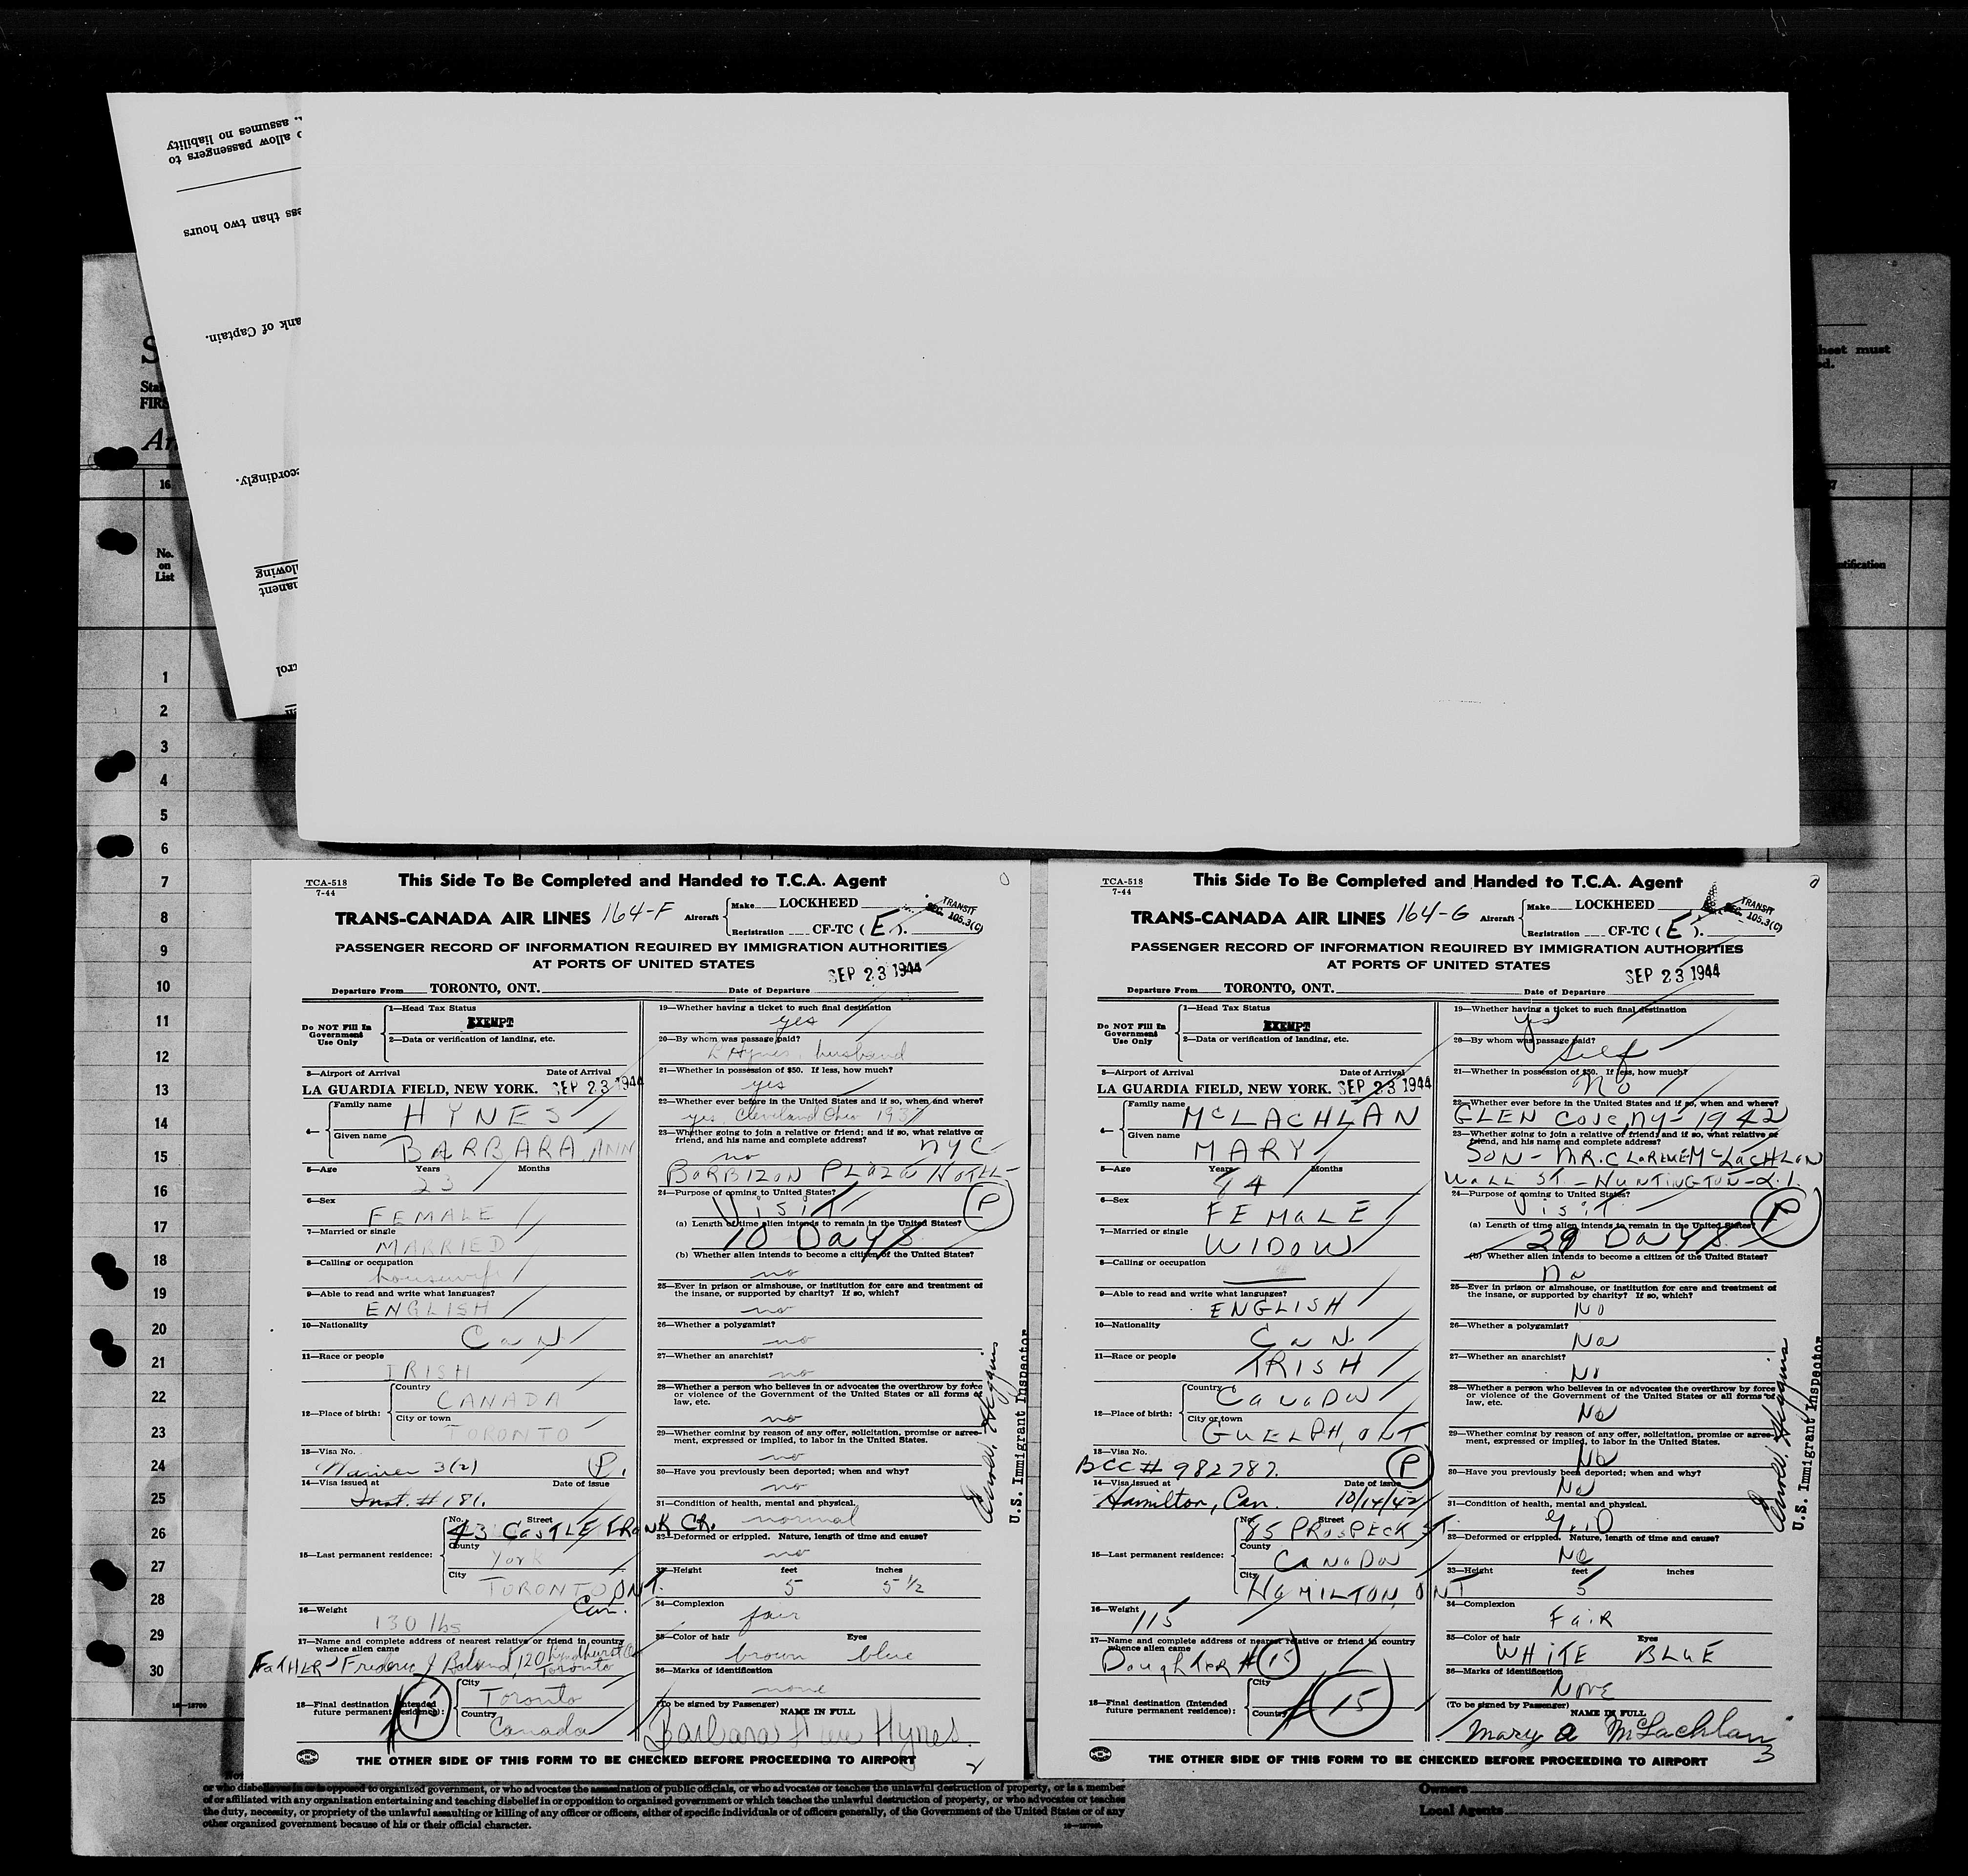 , assumes no liability
allow passengers to
ess than two hours
ank of Captain.
ccordingly.
lowing
manent
rol
S
Stat
FIRS
16
No.
on
List
1
2
3
4
5
6
7
8
9
10
11
12
13
14
15
16
17
18
19
20
21
22
23
24
25
26
27
28
29
30
heet must
ed.
ntification
TCA-518
7-44
This Side To Be Completed and Handed to T.C.A. Agent
TRANS-CANADA AIR LINES 164-F Aircraft Make LOCKHEED
Registration CF-TC (E).
TRANSIT
SEC. 105.3(C)
PASSENGER RECORD OF INFORMATION REQUIRED BY IMMIGRATION AUTHORITIES
AT PORTS OF UNITED STATES
SEP 23 1944
Departure From TORONTO, ONT. Date of Departure
Do NOT Fill In Government Use Only
1—Head Tax Status
EXEMPT
2—Data or verification of landing, etc.
3—Airport of Arrival Date of Arrival
LA GUARDIA FIELD, NEW YORK. SEP 23 1944
4— Family name HYNES
Given name BARBARA ANN
5—Age Years Months
23
6—Sex
FEMALE
7—Married or single
MARRIED
8—Calling or occupation
housewife
9—Able to read and write what languages?
ENGLISH
10—Nationality
CaN
11—Race or people
IRISH
12—Place of birth: Country
CANADA
City or town
TORONTO
13—Visa No.
Waiver 3(2) P.
14—Visa issued at Date of issue
Inst. #181.
15—Last permanent residence: No. Street
43 CaSTLE FRaNK Cr.
County
York
City
TORONTO ONT.
Can.
16—Weight
130 lbs
17—Name and complete address of nearest relative or friend in country
whence alien came
FaTHER - Frederic J 120 Lyndhurst
Toronto
18—Final destination (Intended
future permanent residence):
City
Toronto
Country
Canada
19—Whether having a ticket to such final destination
yes
20—By whom was passage paid?
Hynes, husband
21—Whether in possession of $50. If less, how much?
yes
22—Whether ever before in the United States and if so, when and where?
yes Cleveland Ohio 1937
23—Whether going to join a relative or friend; and if so, what relative or
friend, and his name and complete address?
no NYC
BaRBIZoN PLaZa HoTEL
24—Purpose of coming to United States?
VisiT P
(a) Length of time alien intends to remain in the United States?
10 DaYS
(b) Whether alien intends to become a citizen of the United States?
no
25—Ever in prison or almshouse, or institution for care and treatment of
the insane, or supported by charity? If so, which?
no
26—Whether a polygamist?
no
27—Whether an anarchist?
no
28—Whether a person who believes in or advocates the overthrow by force
or violence of the Government of the United States or all forms of
law, etc.
no
29—Whether coming by reason of any offer, solicitation, promise or agree-
ment, expressed or implied, to labor in the United States.
no
30—Have you previously been deported; when and why?
no
31—Condition of health, mental and physical.
normal
32—Deformed or crippled. Nature, length of time and cause?
no
33—Height feet inches
5 5 1/2
34—Complexion
fair
35—Color of hair Eyes
brown blue
36—Marks of identification
none
(To be signed by Passenger) NAME IN FULL
Barbara Ann Hynes.
2
U.S. Immigrant Inspector
THE OTHER SIDE OF THIS FORM TO BE CHECKED BEFORE PROCEEDING TO AIRPORT
TCA-518
7-44
This Side To Be Completed and Handed to T.C.A. Agent
TRANS-CANADA AIR LINES 164-G Aircraft Make LOCKHEED
Registration CF-TC (E).
TRANSIT
SEC. 105.3(C)
PASSENGER RECORD OF INFORMATION REQUIRED BY IMMIGRATION AUTHORITIES
AT PORTS OF UNITED STATES
SEP 23 1944
Departure From TORONTO, ONT. Date of Departure
Do NOT Fill In Government Use Only
1—Head Tax Status
EXEMPT
2—Data or verification of landing, etc.
3—Airport of Arrival Date of Arrival
LA GUARDIA FIELD, NEW YORK. SEP 23 1944
4— Family name McLACHLAN
Given name MARY
5—Age Years Months
84
6—Sex
FEMaLE
7—Married or single
WIDOW
8—Calling or occupation
9—Able to read and write what languages?
ENGLISH
10—Nationality
CaN.
11—Race or people
IRISH
12—Place of birth: Country
CaNaDa
City or town
GUELPH, ONT
13—Visa No.
BCC # 982787. P
14—Visa issued at Date of issue
Hamilton, Can. 10/14/42
15—Last permanent residence: No. Street
85 PRoSPECK ST.
County
CaNaDa
City
HaMILTON, ONT
16—Weight
115
17—Name and complete address of nearest relative or friend in country
whence alien came
DaughTER #15
18—Final destination (Intended
future permanent residence):
City
Country
#15
19—Whether having a ticket to such final destination
yes
20—By whom was passage paid?
Self
21—Whether in possession of $50. If less, how much?
No
22—Whether ever before in the United States and if so, when and where?
GLEN Cove, NY - 1942
23—Whether going to join a relative or friend; and if so, what relative or
friend, and his name and complete address?
SoN - MR. CLaRENCE McLaCHLaN
WaLL ST. - HUNTINGTON - L.I.
24—Purpose of coming to United States?
VisiT P
(a) Length of time alien intends to remain in the United States?
29 DaYS
(b) Whether alien intends to become a citizen of the United States?
No
25—Ever in prison or almshouse, or institution for care and treatment of
the insane, or supported by charity? If so, which?
No
26—Whether a polygamist?
No
27—Whether an anarchist?
No
28—Whether a person who believes in or advocates the overthrow by force
or violence of the Government of the United States or all forms of
law, etc.
No
29—Whether coming by reason of any offer, solicitation, promise or agree-
ment, expressed or implied, to labor in the United States.
No
30—Have you previously been deported; when and why?
No
31—Condition of health, mental and physical.
32—Deformed or crippled. Nature, length of time and cause?
No
33—Height feet inches
5
34—Complexion
FaiR
35—Color of hair Eyes
WHiTE BLuE
36—Marks of identification
NoNE
(To be signed by Passenger) NAME IN FULL
Mary a McLachlan
3
U.S. Immigrant Inspector
THE OTHER SIDE OF THIS FORM TO BE CHECKED BEFORE PROCEEDING TO AIRPORT
or who disbelieves in or is opposed to organized government, or who advocates the assassination of public officials, or who advocates or teaches the unlawful destruction of property, or is a member
of or affiliated with any organization entertaining and teaching disbelief in or opposition to organized government or which teaches the unlawful destruction of property, or who advocates or teaches
the duty, necessity, or propriety of the unlawful assaulting or killing of any officer or officers, either of specific individuals or of officers generally, of the Government of the United States or of any
other organized government because of his or their official character.
Owners
Local Agents